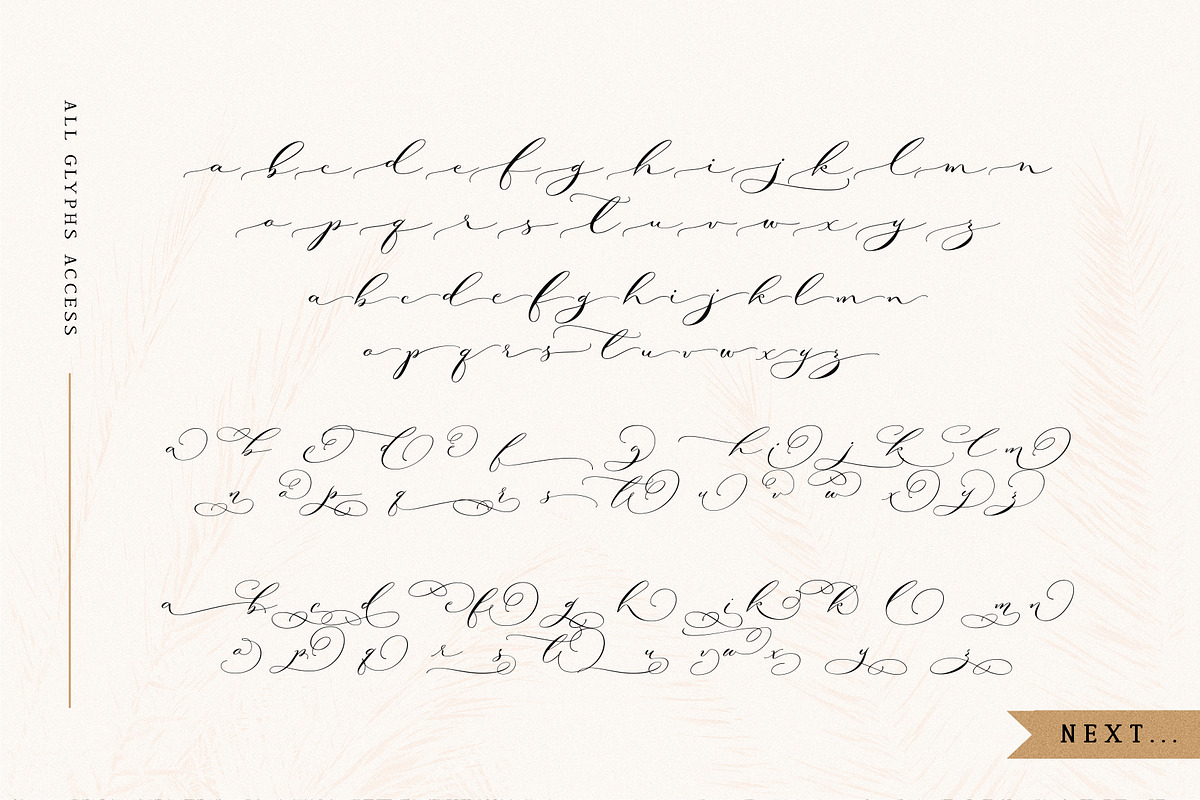 ALL GLYPHS ACCESS
a b c d e f g h i j k l m n
o p q r s t u v w x y z
a b c d e f g h i j k l m n
o p q r s t u v w x y z
a b c d e f g h i j k l m
n o p q r s t u v w x y z
a b c d e f g h i k k l m n
o p q r s t u v w x y z
NEXT...